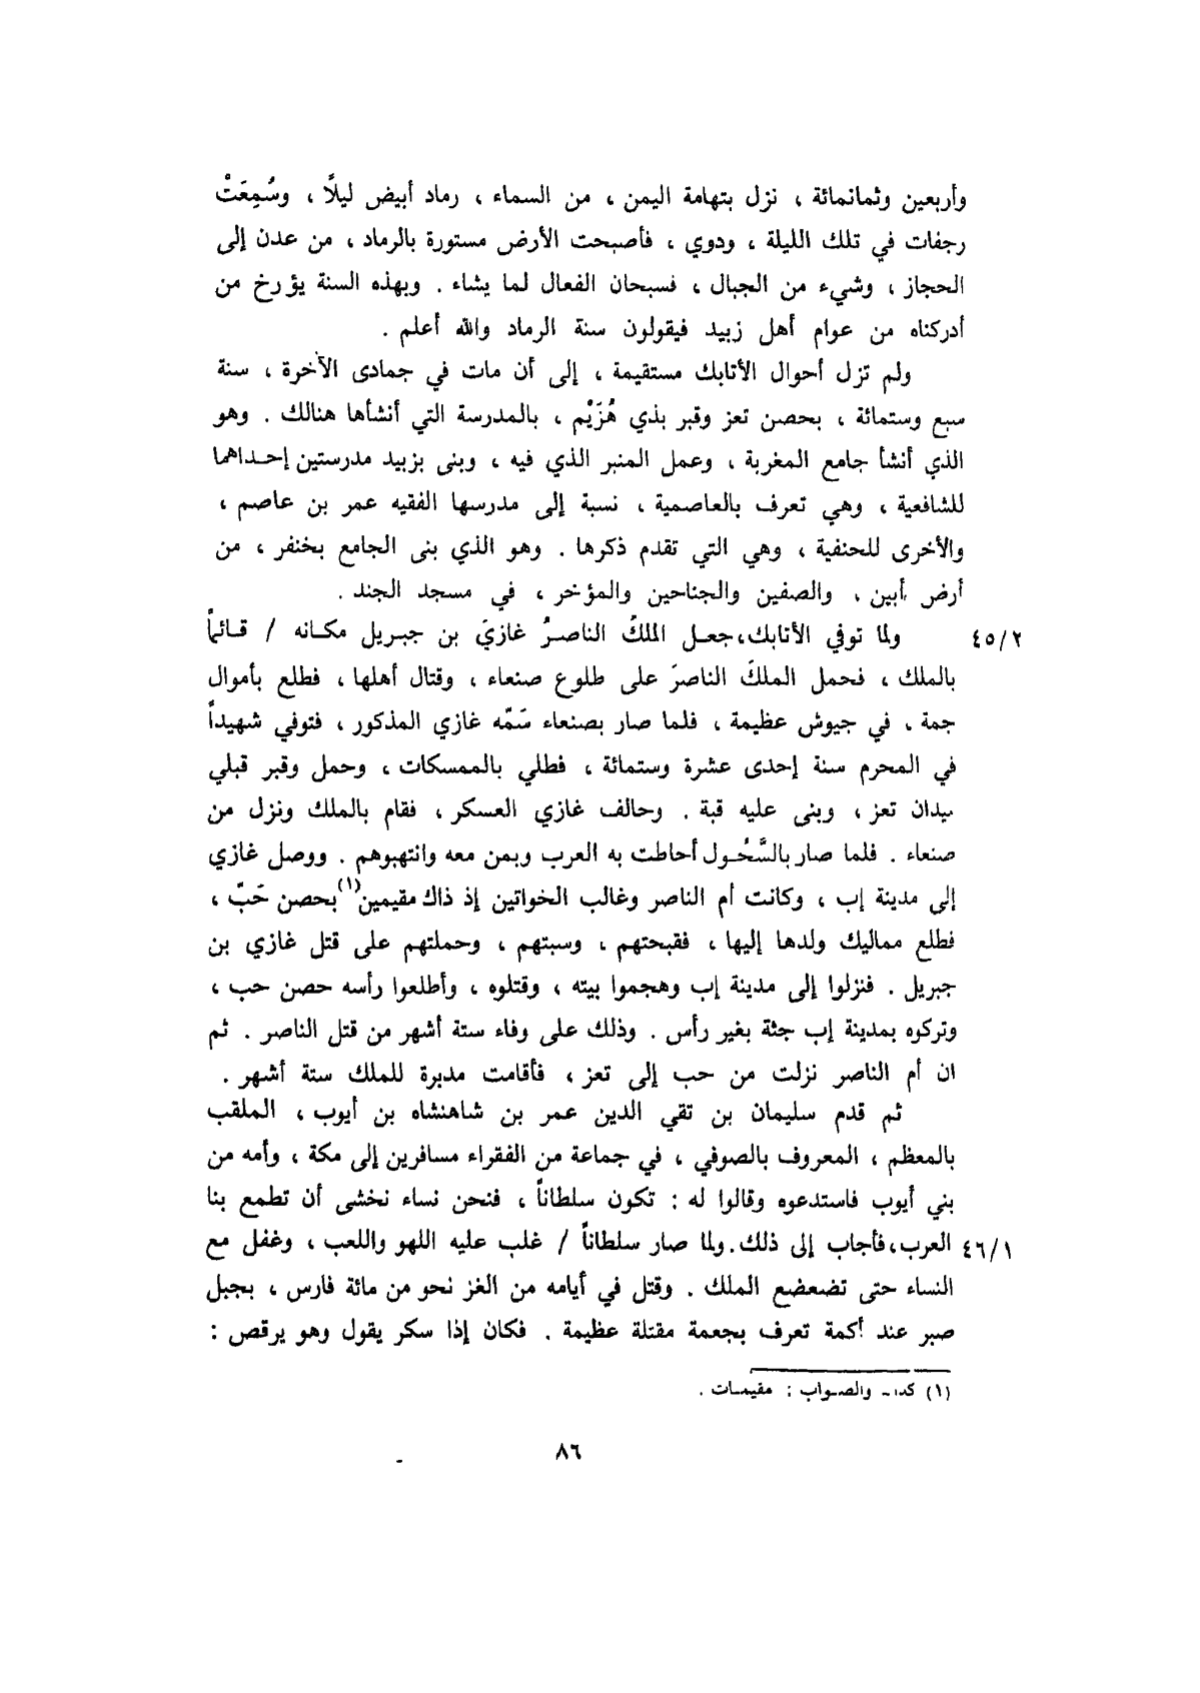 وأربعين وثمانمائة ، نزل بتهامة اليمن ، من السماء ، رماد أبيض ليلاً ، وسُمِعَتْ
رجفات في تلك الليلة ، ودوي ، فأصبحت الأرض مستورة بالرماد ، من عدن إلى
الحجاز ، وشيء من الجبال ، فسبحان الفعال لما يشاء . وبهذه السنة يؤرخ من
أدركناه من عوام أهل زبيد فيقولون سنة الرماد والله أعلم .
ولم تزل أحوال الأتابك مستقيمة ، إلى أن مات في جمادى الآخرة ، سنة
سبع وستمائة ، بحصن تعز وقبر بذي هُزَيْم ، بالمدرسة التي أنشأها هنالك . وهو
الذي أنشأ جامع المغربة ، وعمل المنبر الذي فيه ، وبنى بزبيد مدرستين إحداهما
للشافعية ، وهي تعرف بالعاصمية ، نسبة إلى مدرسها الفقيه عمر بن عاصم ،
والأخرى للحنفية ، وهي التي تقدم ذكرها . وهو الذي بنى الجامع بخنفر ، من
أرض أبين ، والصفين والجناحين والمؤخر ، في مسجد الجند .
٤٥/٢ ولما توفي الأتابك، جعل الملكُ الناصرُ غازيَ بن جبريل مكانه / قائماً
بالملك ، فحمل الملكَ الناصرَ على طلوع صنعاء ، وقتال أهلها ، فطلع بأموال
جمة ، في جيوش عظيمة ، فلما صار بصنعاء سَمّه غازي المذكور ، فتوفي شهيداً
في المحرم سنة إحدى عشرة وستمائة ، فطلي بالممسكات ، وحمل وقبر قبلي
ميدان تعز ، وبنى عليه قبة . وحالف غازي العسكر ، فقام بالملك ونزل من
صنعاء . فلما صار بالسَّحُول أحاطت به العرب وبمن معه وانتهبوهم . ووصل غازي
إلى مدينة إب ، وكانت أم الناصر وغالب الخواتين إذ ذاك مقيمين(١) بحصن حَبّ ،
فطلع مماليك ولدها إليها ، فقبحتهم ، وسبتهم ، وحملتهم على قتل غازي بن
جبريل . فنزلوا إلى مدينة إب وهجموا بيته ، وقتلوه ، وأطلعوا رأسه حصن حب ،
وتركوه بمدينة إب جثة بغير رأس . وذلك على وفاء ستة أشهر من قتل الناصر . ثم
ان أم الناصر نزلت من حب إلى تعز ، فأقامت مدبرة للملك ستة أشهر .
ثم قدم سليمان بن تقي الدين عمر بن شاهنشاه بن أيوب ، الملقب
بالمعظم ، المعروف بالصوفي ، في جماعة من الفقراء مسافرين إلى مكة ، وأمه من
بني أيوب فاستدعوه وقالوا له : تكون سلطاناً ، فنحن نساء نخشى أن تطمع بنا
٤٦/١ العرب، فأجاب إلى ذلك. ولما صار سلطاناً / غلب عليه اللهو واللعب ، وغفل مع
النساء حتى تضعضع الملك . وقتل في أيامه من الغز نحو من مائة فارس ، بجبل
صبر عند أكمة تعرف بجعمة مقتلة عظيمة . فكان إذا سكر يقول وهو يرقص :
(١) كذا - والصواب : مقيمات .
٨٦